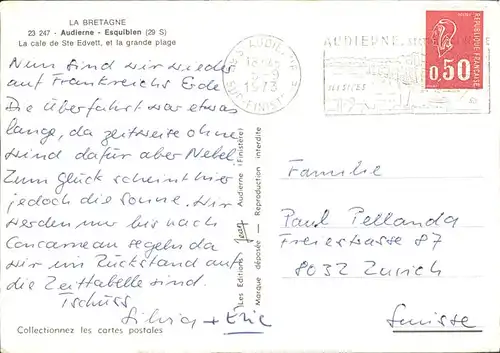 LA BRETAGNE
23 247 - Audierne - Esquibien (29 S)
La cale de Ste Edvett, et la grande plage
Nun sind wir wieder
auf Frankreichs Erde
Die Überfahrt war etwas
lange, da zeitweise ohne
Wind dafür aber Nebel.
Zum Glück scheint hier
jedoch die Sonne. Wir
werden nur bis nach
Concarneau segeln da
wir im Rückstand auf
die Zeittabelle sind.
Tschüss
Silvia + Eric
Collectionnez les cartes postales
(Les Editions Jean Audierne (Finistère)
Marque déposée — Reproduction interdite
29 AUDIERNE
1973
SUD-FINISTERE
AUDIERNE
REPUBLIQUE FRANÇAISE
0,50
Familie
Paul Pellanda
Freiestrasse 87
8032 Zurich
Suisse